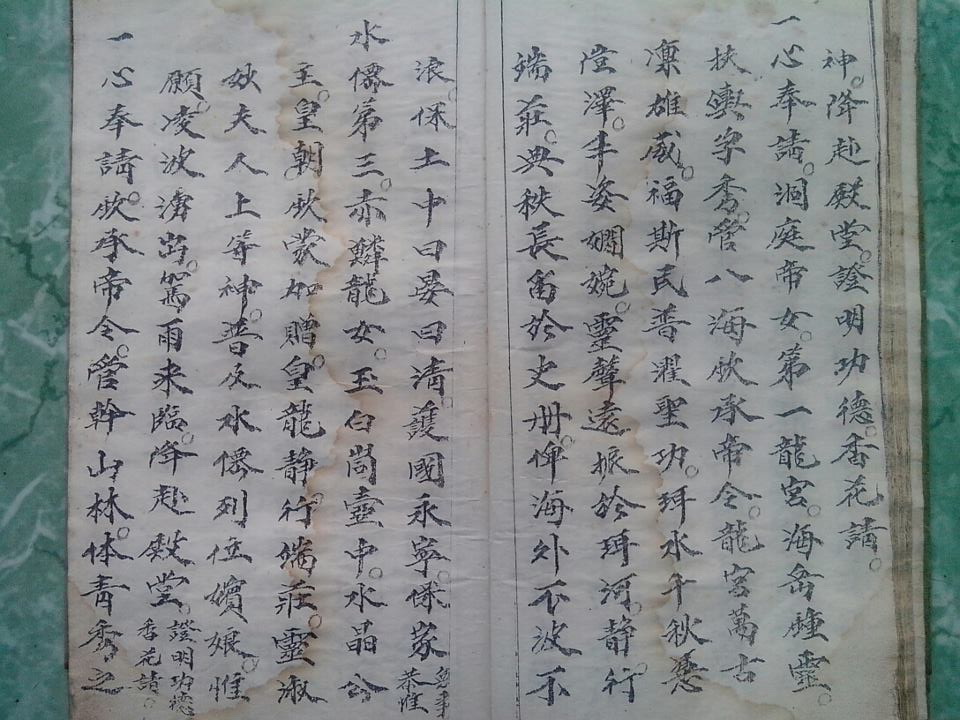 神降赴殿堂證明功德香花請
一心奉請洞庭帝女第一龍宮海岳鍾靈
扶輿孕秀管八海欽承帝令龍宮萬古
凜雄威福斯民普濯聖功珥水千秋憑
聲遠振於珥河静行
端莊典秩長留於史册俾海外不波不
浪保土中曰晏曰清護國永寧保家
恭惟
水僊第三
龍女玉白
靈中水晶公
主皇朝欽蒙加贈皇龍静行端莊靈淑
妙夫人上等神普及水僊列位嬪娘惟
願凌波
駕雨来臨降赴殿堂
證明功德
香花請
一心奉請欽承帝令管幹山林体青秀之